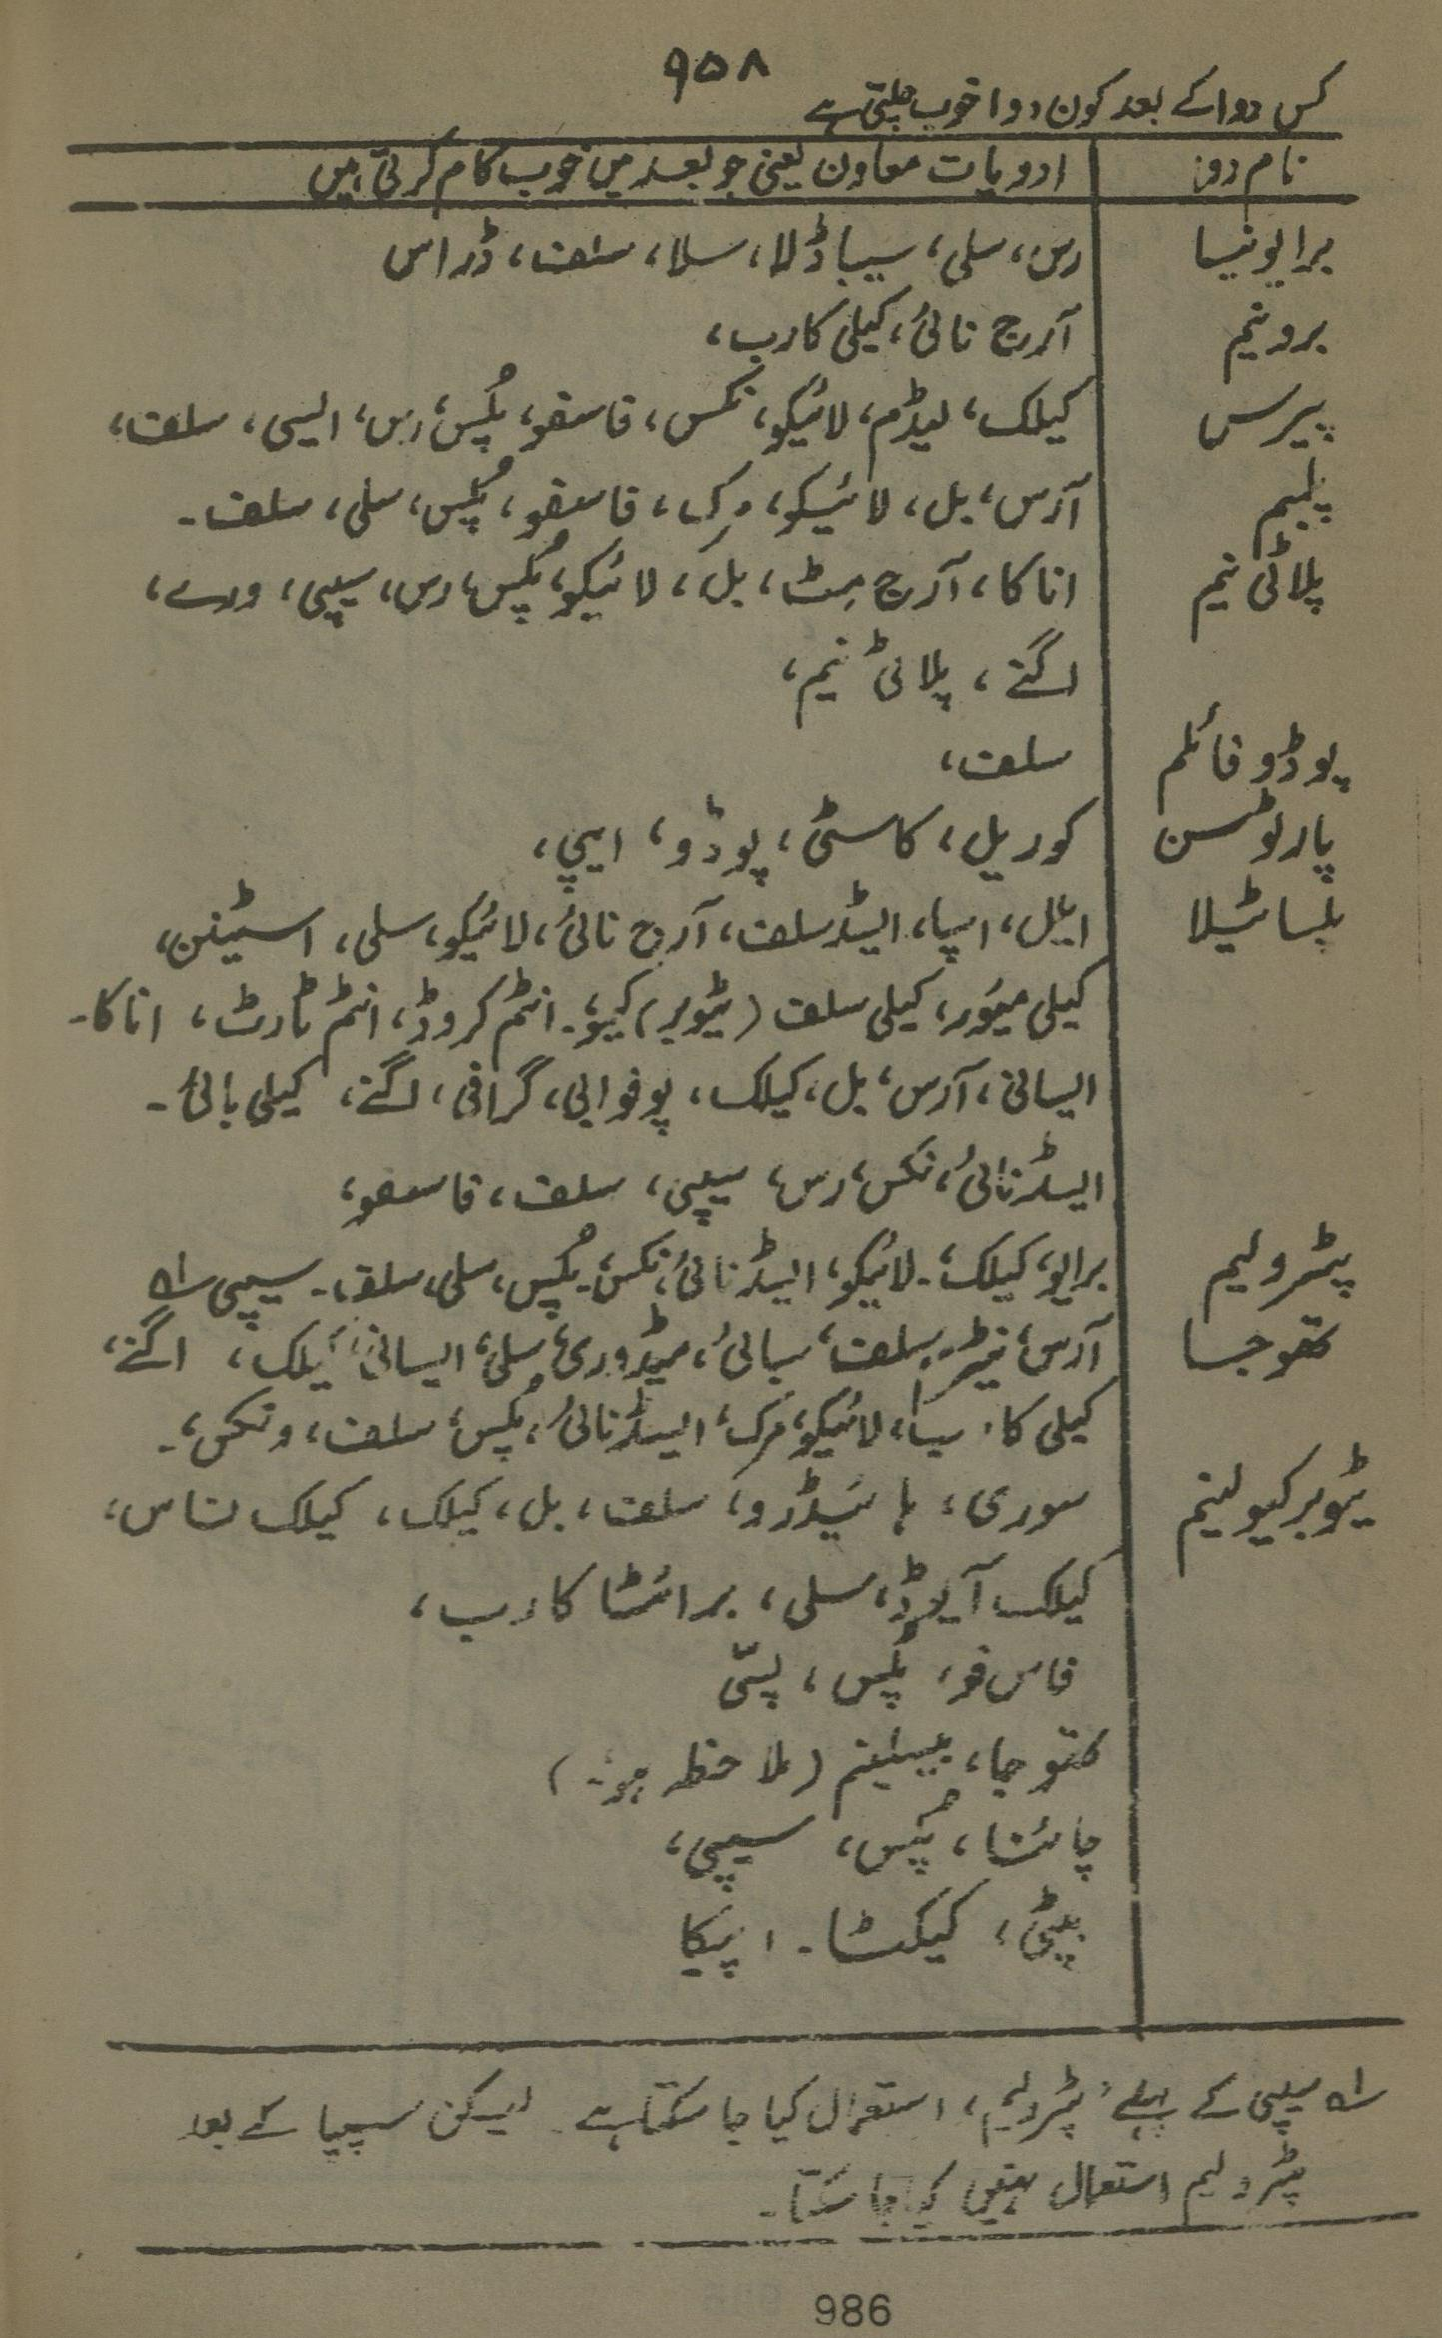 ۹۵۸
کس دوا کے بعد کون دوا خوب چلتی ہے
نام دوا ادویات معاون یعنی جو بعد میں خوب کام کرتی ہیں
برایونیا رس، سلی، سیباڈلا، سلا، سلف، ڈراس
برونیم آرج نائی، کیلی کارب،
پیرس کیلک، لیڈم، لائیکو، نکس، فاسفو، پلس، رس، ایسی، سلف،
پلبم آرس، بل، لائیکو، مرک، فاسفو، پلس، سلی، سلف۔
پلاٹی نیم اناکا، آرج مٹ، بل، لائیکو، پلس، رس، سیپی، ورے،
اگنے، پلاٹی نیم،
پوڈوفائلم سلف،
پارٹوسن کوریل، کاسٹی، پوڈو، ایپی،
پلساٹیلا ایل، اسپا، ایسڈ سلف، آرج نائی، لائیکو، سلی، اسٹینن،
کیلی میور، کیلی سلف (ٹیوبر) کیو۔ انٹم کروڈ، انٹم ٹارٹ، اناکا۔
ایسانی، آرس، بل، کیلک، یوفوابی، گرافی، اگنے، کیلی بائی۔
ایسڈ نائی، نکس، رس، سیپی، سلف، فاسفو،
پٹرولیم برایو، کیلک۔ لائیکو، ایسڈ نائی، نکس، پلس، سلی، سلف۔ سیپی لہ
تھوجا آرس، سلف، سبائی، میڈوری، سلی، ایسانی، کیلک، اگنے،
کیلی کا، لائیکو، مرک، ایسڈ نائی، پلس، سلف، ونکس۔
ٹیوبرکیولینم سوری، ہائیڈرو، سلف، بل، کیلک، کیلک فاس،
کیلک آیوڈ، سلی، برائٹا کارب،
فاس فو، پلس، پسّی
تھوجا، بیسلینم (ملاحظہ ہو۔)
چائنا، پلس، سیپی،
بیٹی، کیکٹا۔ اپیکا
لہ سیپی کے پہلے، پٹرولیم، استعمال کیا جا سکتا ہے۔ لیکن سیپیا کے بعد
پٹرولیم استعمال نہیں کیا جا سکتا۔
986